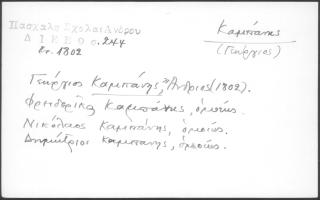 Πασχάλη Σχολαι Άνδρου
ΔΙΕΕΘ 244
ετ. 1802
Καμπάνης
(Γεώργιος)
Γεώργιος Καμπάνης, Άνδριος (1802).
Καμπάνης, ὁμοίως.
Νικόλαος Καμπάνης, ὁμοίως.
Δημήτριος Καμπάνης, ὁμοίως.